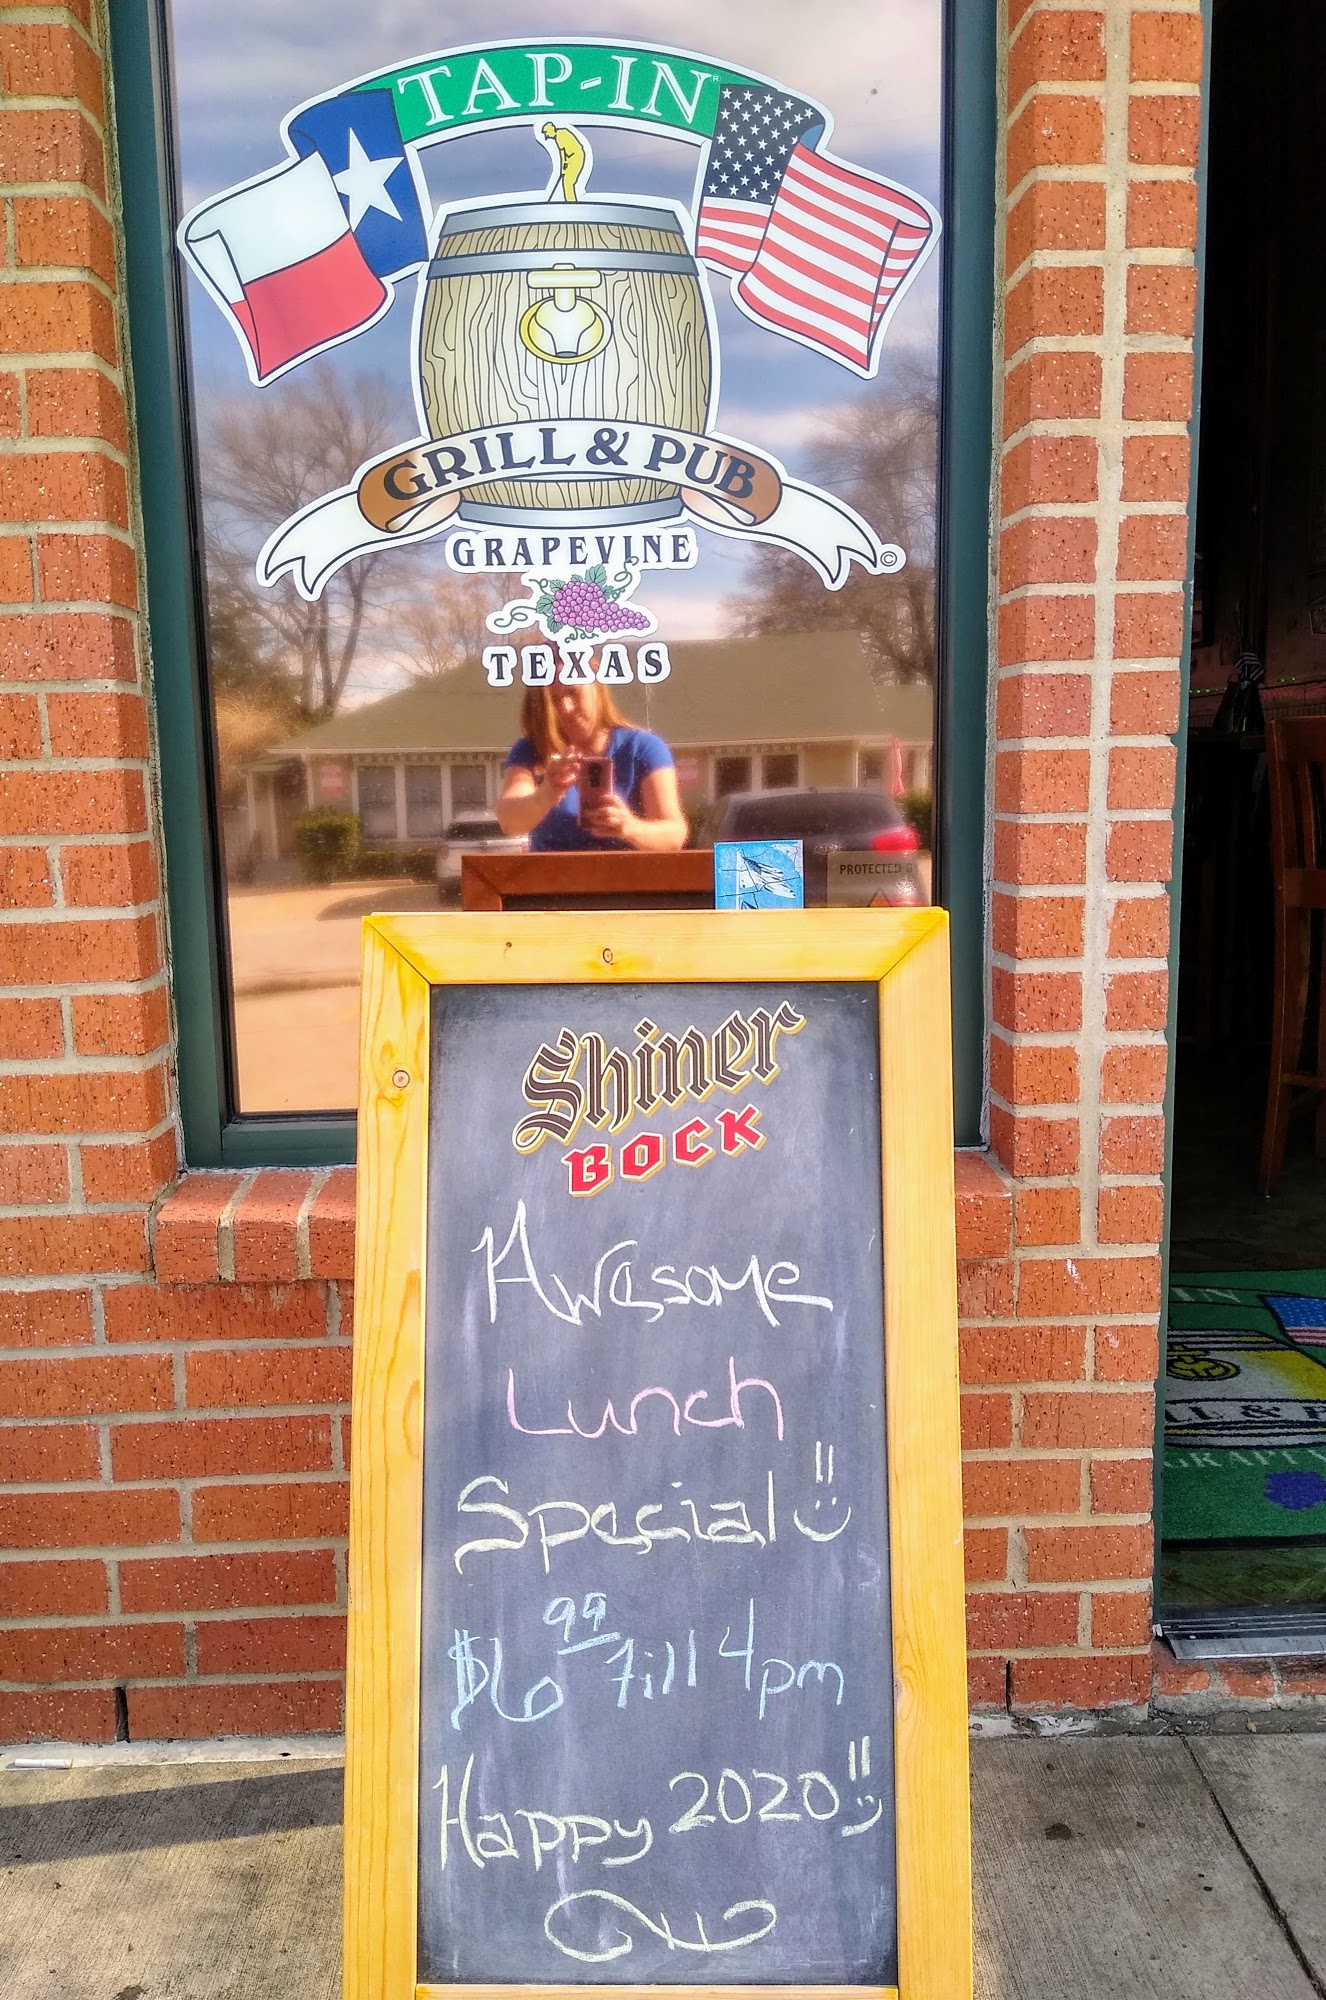 TAP-IN®
GRILL & PUB
©
GRAPEVINE
TEXAS
PROTECTED B
Shiner
BOCK
Awesome
Lunch
Special
$6.99 till 4pm
Happy 2020
IN
LL & P
GRAPEV